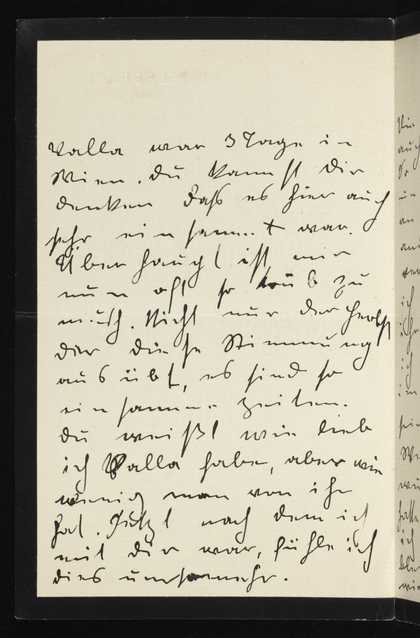 Valla war 3 Tage in
Wien. Du kannst Dir
denken daß es hier auch
sehr einsam t war.
Überhaupt ist mir
nun oft so trüb zu
muth. Nicht nur der Herbst
der diese Stimmung
ausübt, es sind so
einsame Zeiten.
Du weißt wie lieb
ich Valla habe, aber wie
wenig man von ihr
hat. Jetzt nach dem ich
mit dir war, fühle ich
dies umsomehr.